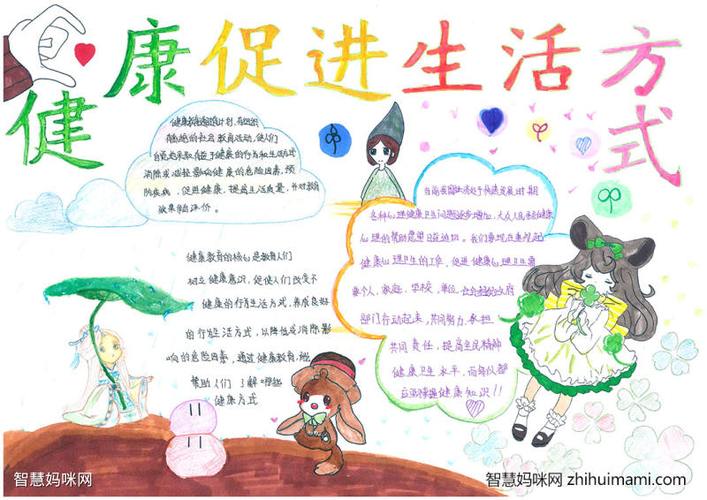 健康促进生活方式
健康教育是有计划、有组织
有系统的社会教育活动，使人们
自觉地采取有益于健康的行为和生活方式
消除或减轻影响健康的危险因素，预
防疾病，促进健康，提高生活质量，并对教育
效果作评价。
健康教育的核心是教育人们
树立健康意识，促使人们改变不
健康的行为生活方式，养成良好
的行为生活方式，以降低或消除影
响的危险因素，通过健康教育，能
帮助人们了解哪些
健康方式
当前我国生活处于快速发展时期
各种心理健康卫生问题逐步增加，大众人民
心理的帮助愿望日益迫切。我们要
健康心理卫生的工作，促进健康心理卫生需
要个人，家庭，学校，单位，
部门行动起来，共同努力，承担
共同责任，提高全民精神
健康卫生水平，而每人都
应该掌握健康知识！！
智慧妈咪网
智慧妈咪网 zhihuimami.com